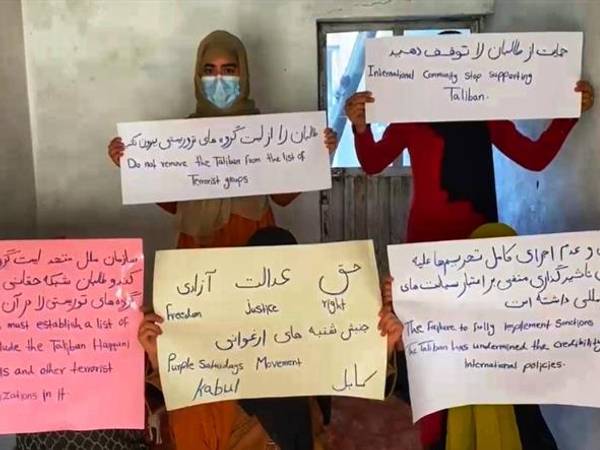 حمایت از طالبان را توقف دهید
International Community Stop supporting
Taliban.
طالبان را از لیست گروه های تروریستی بیرون نکنید
Do not remove the Taliban from the list of
Terrorist groups
سازمان ملل متحد لیست
کند و طالبان شبکه حقانی
گروه های تروریستی را در آن
must establish a list of
the Taliban Haqqani
and other terrorist
in it.
حق عدالت آزادی
Freedom Justice right
جنبش شنبه های ارغوانی
Purple Saturdays Movement
Kabul کابل
و عدم اجرای کامل تحریم ها علیه
تاثیر گذاری منفی بر اعتبار سیاست های
داشته است
The Failure to fully implement Sanctions
the Taliban has undermined the credibility
International policies.